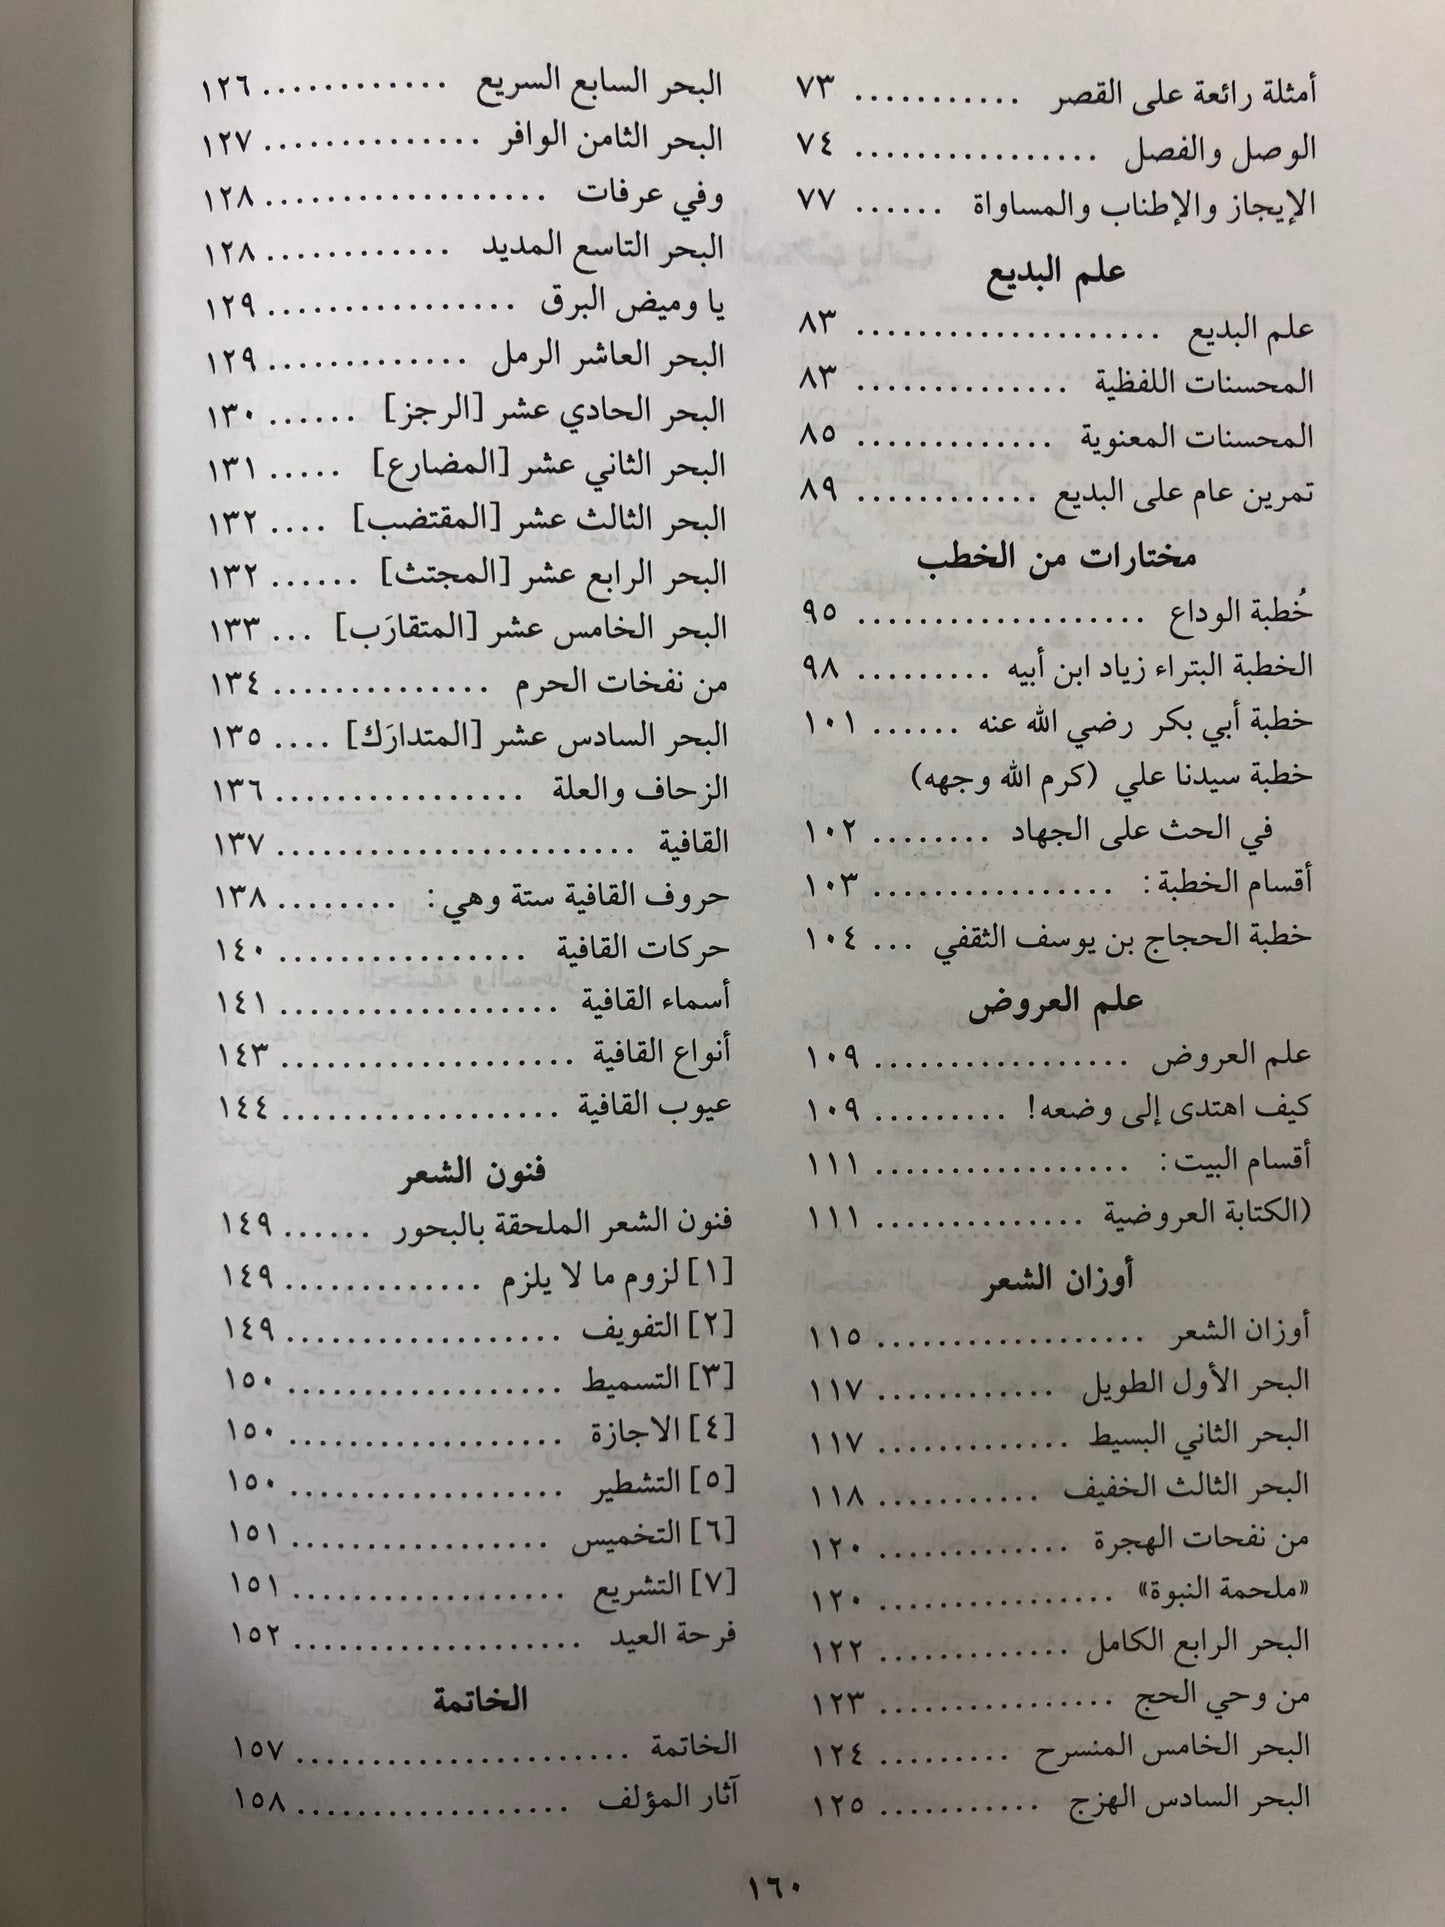 أمثلة رائعة على القصر ........... ٧٣
الوصل والفصل ................ ٧٤
الإيجاز والإطناب والمساواة ...... ٧٧
علم البديع
علم البديع .................... ٨٣
المحسنات اللفظية .............. ٨٣
المحسنات المعنوية ............. ٨٥
تمرين عام على البديع ............ ٨٩
مختارات من الخطب
خُطبة الوداع ................... ٩٥
الخطبة البتراء زياد ابن أبيه ......... ٩٨
خطبة أبي بكر رضي الله عنه ...... ١٠١
خطبة سيدنا علي (كرم الله وجهه)
في الحث على الجهاد ........ ١٠٢
أقسام الخطبة: ................ ١٠٣
خطبة الحجاج بن يوسف الثقفي ... ١٠٤
علم العروض
علم العروض ................. ١٠٩
كيف اهتدى إلى وضعه! ......... ١٠٩
أقسام البيت: ................. ١١١
(الكتابة العروضية .............. ١١١
أوزان الشعر
أوزان الشعر .................. ١١٥
البحر الأول الطويل ............ ١١٧
البحر الثاني البسيط ............. ١١٧
البحر الثالث الخفيف ........... ١١٨
من نفحات الهجرة ............. ١٢٠
«ملحمة النبوة» ................ ١٢٠
البحر الرابع الكامل ............. ١٢٢
من وحي الحج ................ ١٢٣
البحر الخامس المنسرح ......... ١٢٤
البحر السادس الهزج ........... ١٢٥
البحر السابع السريع ............ ١٢٦
البحر الثامن الوافر .............. ١٢٧
وفي عرفات ................... ١٢٨
البحر التاسع المديد ............ ١٢٨
يا وميض البرق ................. ١٢٩
البحر العاشر الرمل ............. ١٢٩
البحر الحادي عشر [الرجز] ...... ١٣٠
البحر الثاني عشر [المضارع] ..... ١٣١
البحر الثالث عشر [المقتضب] .... ١٣٢
البحر الرابع عشر [المجتث] ...... ١٣٢
البحر الخامس عشر [المتقارَب] ... ١٣٣
من نفخات الحرم .............. ١٣٤
البحر السادس عشر [المتدارَك] .... ١٣٥
الزحاف والعلة ................. ١٣٦
القافية ........................ ١٣٧
حروف القافية ستة وهي: ........ ١٣٨
حركات القافية ................. ١٤٠
أسماء القافية ................... ١٤١
أنواع القافية .................... ١٤٣
عيوب القافية ................... ١٤٤
فنون الشعر
فنون الشعر الملحقة بالبحور ...... ١٤٩
[١] لزوم ما لا يلزم ............. ١٤٩
[٢] التفويف ................... ١٤٩
[٣] التسميط ................... ١٥٠
[٤] الاجازة ................... ١٥٠
[٥] التشطير ................... ١٥٠
[٦] التخميس .................. ١٥١
[٧] التشريع ................... ١٥١
فرحة العيد .................... ١٥٢
الخاتمة
الخاتمة ....................... ١٥٧
آثار المؤلف ................... ١٥٨
١٦٠